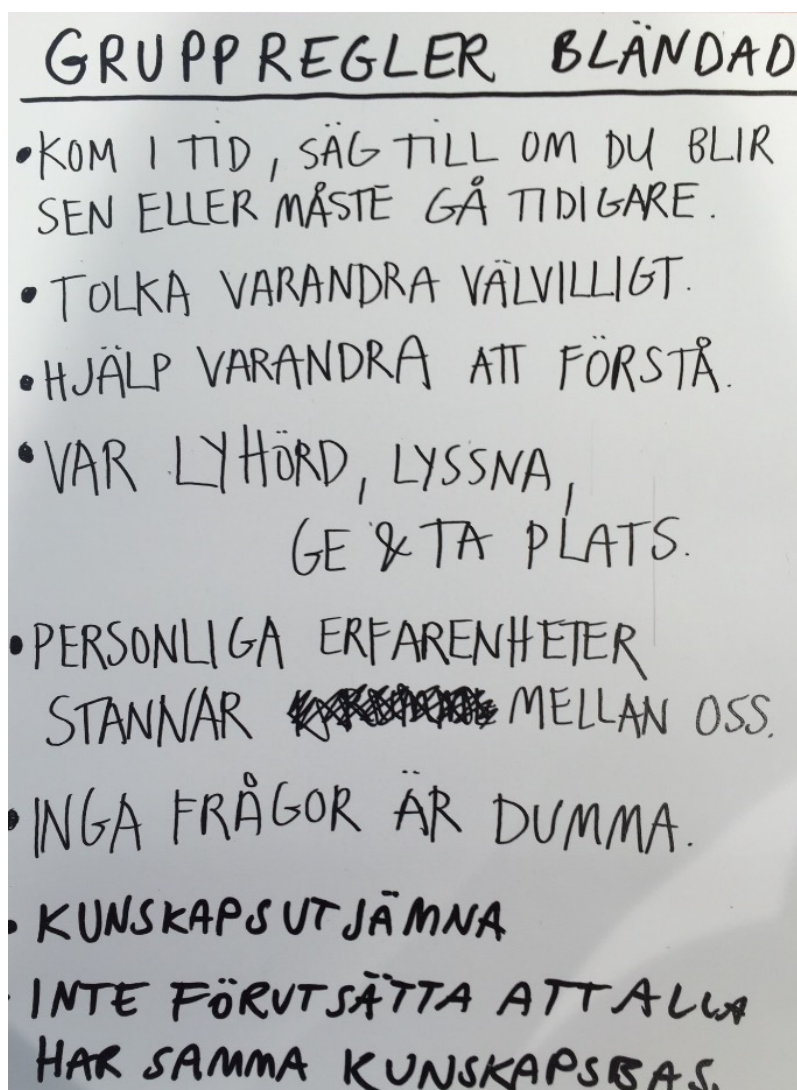 GRUPPREGLER BLÄNDAD
• KOM I TID, SÄG TILL OM DU BLIR
SEN ELLER MÅSTE GÅ TIDIGARE.
• TOLKA VARANDRA VÄLVILLIGT.
• HJÄLP VARANDRA ATT FÖRSTÅ.
• VAR LYHÖRD, LYSSNA,
GE & TA PLATS.
• PERSONLIGA ERFARENHETER
STANNAR MELLAN OSS.
• INGA FRÅGOR ÄR DUMMA.
• KUNSKAPSUTJÄMNA
• INTE FÖRUTSÄTTA ATT ALLA
HAR SAMMA KUNSKAPSBAS